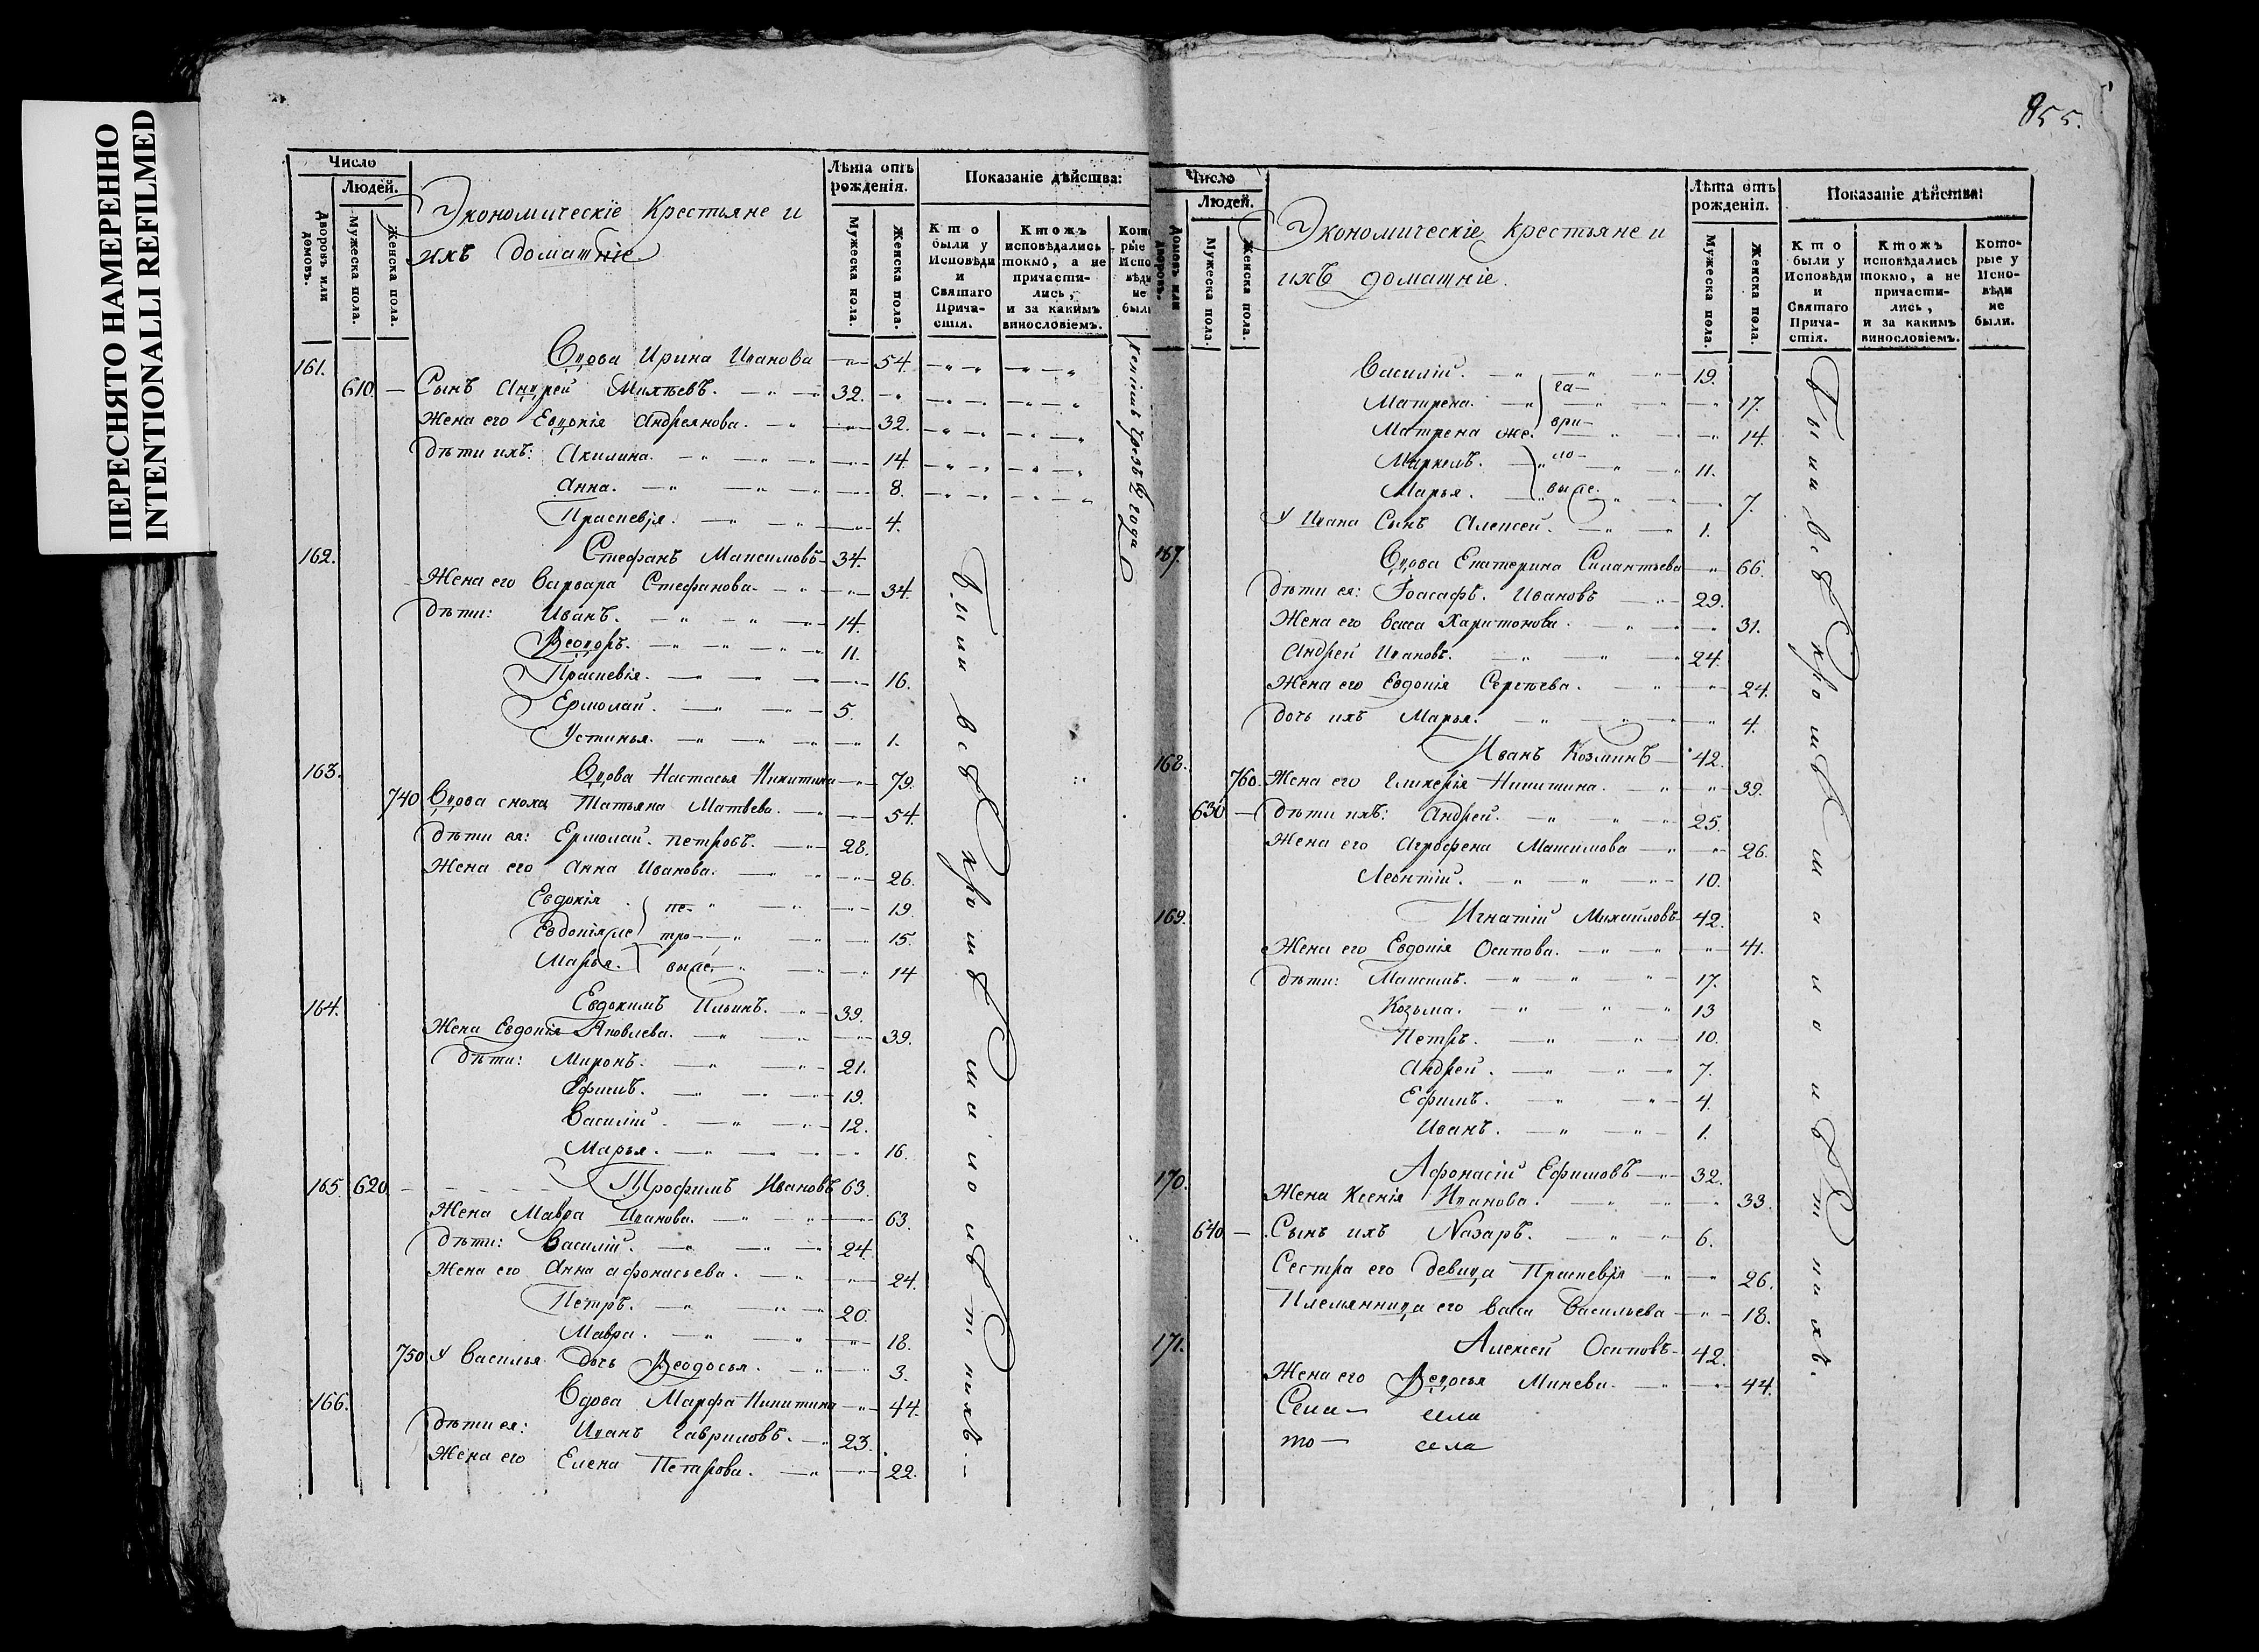 ПЕРЕСНЯТО НАМЕРЕННО
INTENTIONALLI REFILMED
Число
Людей.
Дворовъ или домовъ.
Мужеска пола.
Женска пола.
Экономическіе Крестьяне и
ихъ домашніе
Лѣта отъ рожденія.
Мужеска пола.
Женска пола.
Показаніе дѣйства:
Кто были у Исповѣди и Святаго Причастія.
Ктожъ исповѣдались токмо, а не причастились, и за какимъ винословіемъ.
161. Вдова Ирина Иванова 54.
610. Сынъ Андрей Михѣевъ. 32.
Жена его Евдокія Андреянова. 32.
Дѣти ихъ: Акилина. 14.
Анна. 8.
Прасковія. 4.
162. Стефанъ Максимовъ 34.
Жена его Варвара Стефанова 34.
Дѣти: Иванъ. 14.
Ѳеодоръ. 11.
Прасковія. 16.
Ермолай. 5.
Устинья. 1.
163. Вдова Настасья Никитина 79.
740 Вдова сноха Татьяна Матвева. 54.
Дѣти ея: Ермолай Петровъ. 28.
Жена его Анна Иванова. 26.
Евдокія пе- 19.
Евдокія же тро- 15.
Марья. вы же. 14
164. Евдокимъ Ильинъ. 39.
Жена Евдокія Яковлева. 39.
Дѣти: Миронъ. 21.
Ефимъ. 19.
Василій. 12.
Марья. 16.
165. 620. Трофимъ Ивановъ 63.
Жена Мавра Иванова. 63.
Дѣти: Василій. 24.
Жена его Анна Афонасьева. 24.
Петръ. 20.
Мавра. 18.
750 У Василья дочь Ѳеодосья. 3.
166. Вдова Марфа Никитина 44.
Дѣти ея: Иванъ Гавриловъ. 23.
Жена его Елена Петрова. 22.
Были всѣ кромѣ малолѣтнихъ.
855.
Число
Людей.
Домовъ или дворовъ.
Мужеска пола.
Женска пола.
Экономическіе крестьяне и
ихъ домашніе.
Лѣта отъ рожденія.
Мужеска пола.
Женска пола.
Показаніе дѣйства:
Кто были у Исповѣди и Святаго Причастія.
Ктожъ исповѣдались токмо, а не причастились, и за какимъ винословіемъ.
Которые у Исповѣди не были.
Василій. 19.
Матрена. га- 17.
Матрена же. ври- 14.
Маркелъ. ло- 11.
Марья. вы же. 7.
У Ивана Сынъ Алексей. 1.
167. Вдова Екатерина Силантьева 66.
Дѣти ея: Іоасафъ Ивановъ 29.
Жена его Васса Харитонова. 31.
Андрей Ивановъ. 24.
Жена его Евдокія Сергѣева. 24.
Дочь ихъ Марья. 4.
168. Иванъ Козминъ 42.
760. Жена его Гликерія Никитина. 39.
630 Дѣти ихъ: Андрей. 25.
Жена его Агрофена Максимова 26.
Леонтій. 10.
169. Игнатій Михайловъ 42.
Жена его Евдокія Осипова. 41.
Дѣти: Максимъ. 17.
Козьма. 13
Петръ. 10.
Андрей. 7.
Ефимъ. 4.
Иванъ. 1.
170. Афонасій Ефимовъ 32.
Жена Ксенія Иванова. 33.
640 Сынъ ихъ Назаръ. 6.
Сестра его девица Прасковія 26.
Племянница его Васса Васильева 18.
171. Алексей Осиповъ 42.
Жена его Ѳедосья Минева. 44.
села
то села
Были всѣ кромѣ малолѣтнихъ.